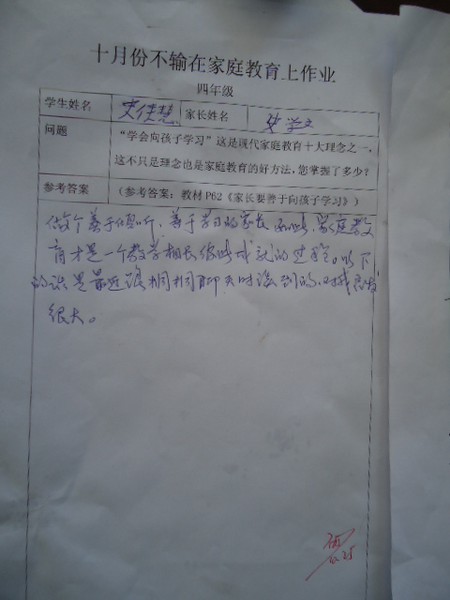 十月份不输在家庭教育上作业
四年级
学生姓名 史佳慧 家长姓名 史学文
问题 “学会向孩子学习”这是现代家庭教育十大理念之一，
这不只是理念也是家庭教育的好方法，您掌握了多少？
参考答案 （参考答案：教材P62《家长要善于向孩子学习》）
做个善于倾听、善于学习的家长 家庭教
育才是一个教学相长彼此成就的过程。以下
的话是最近跟桐桐聊天时谈到的，对我启发
很大。